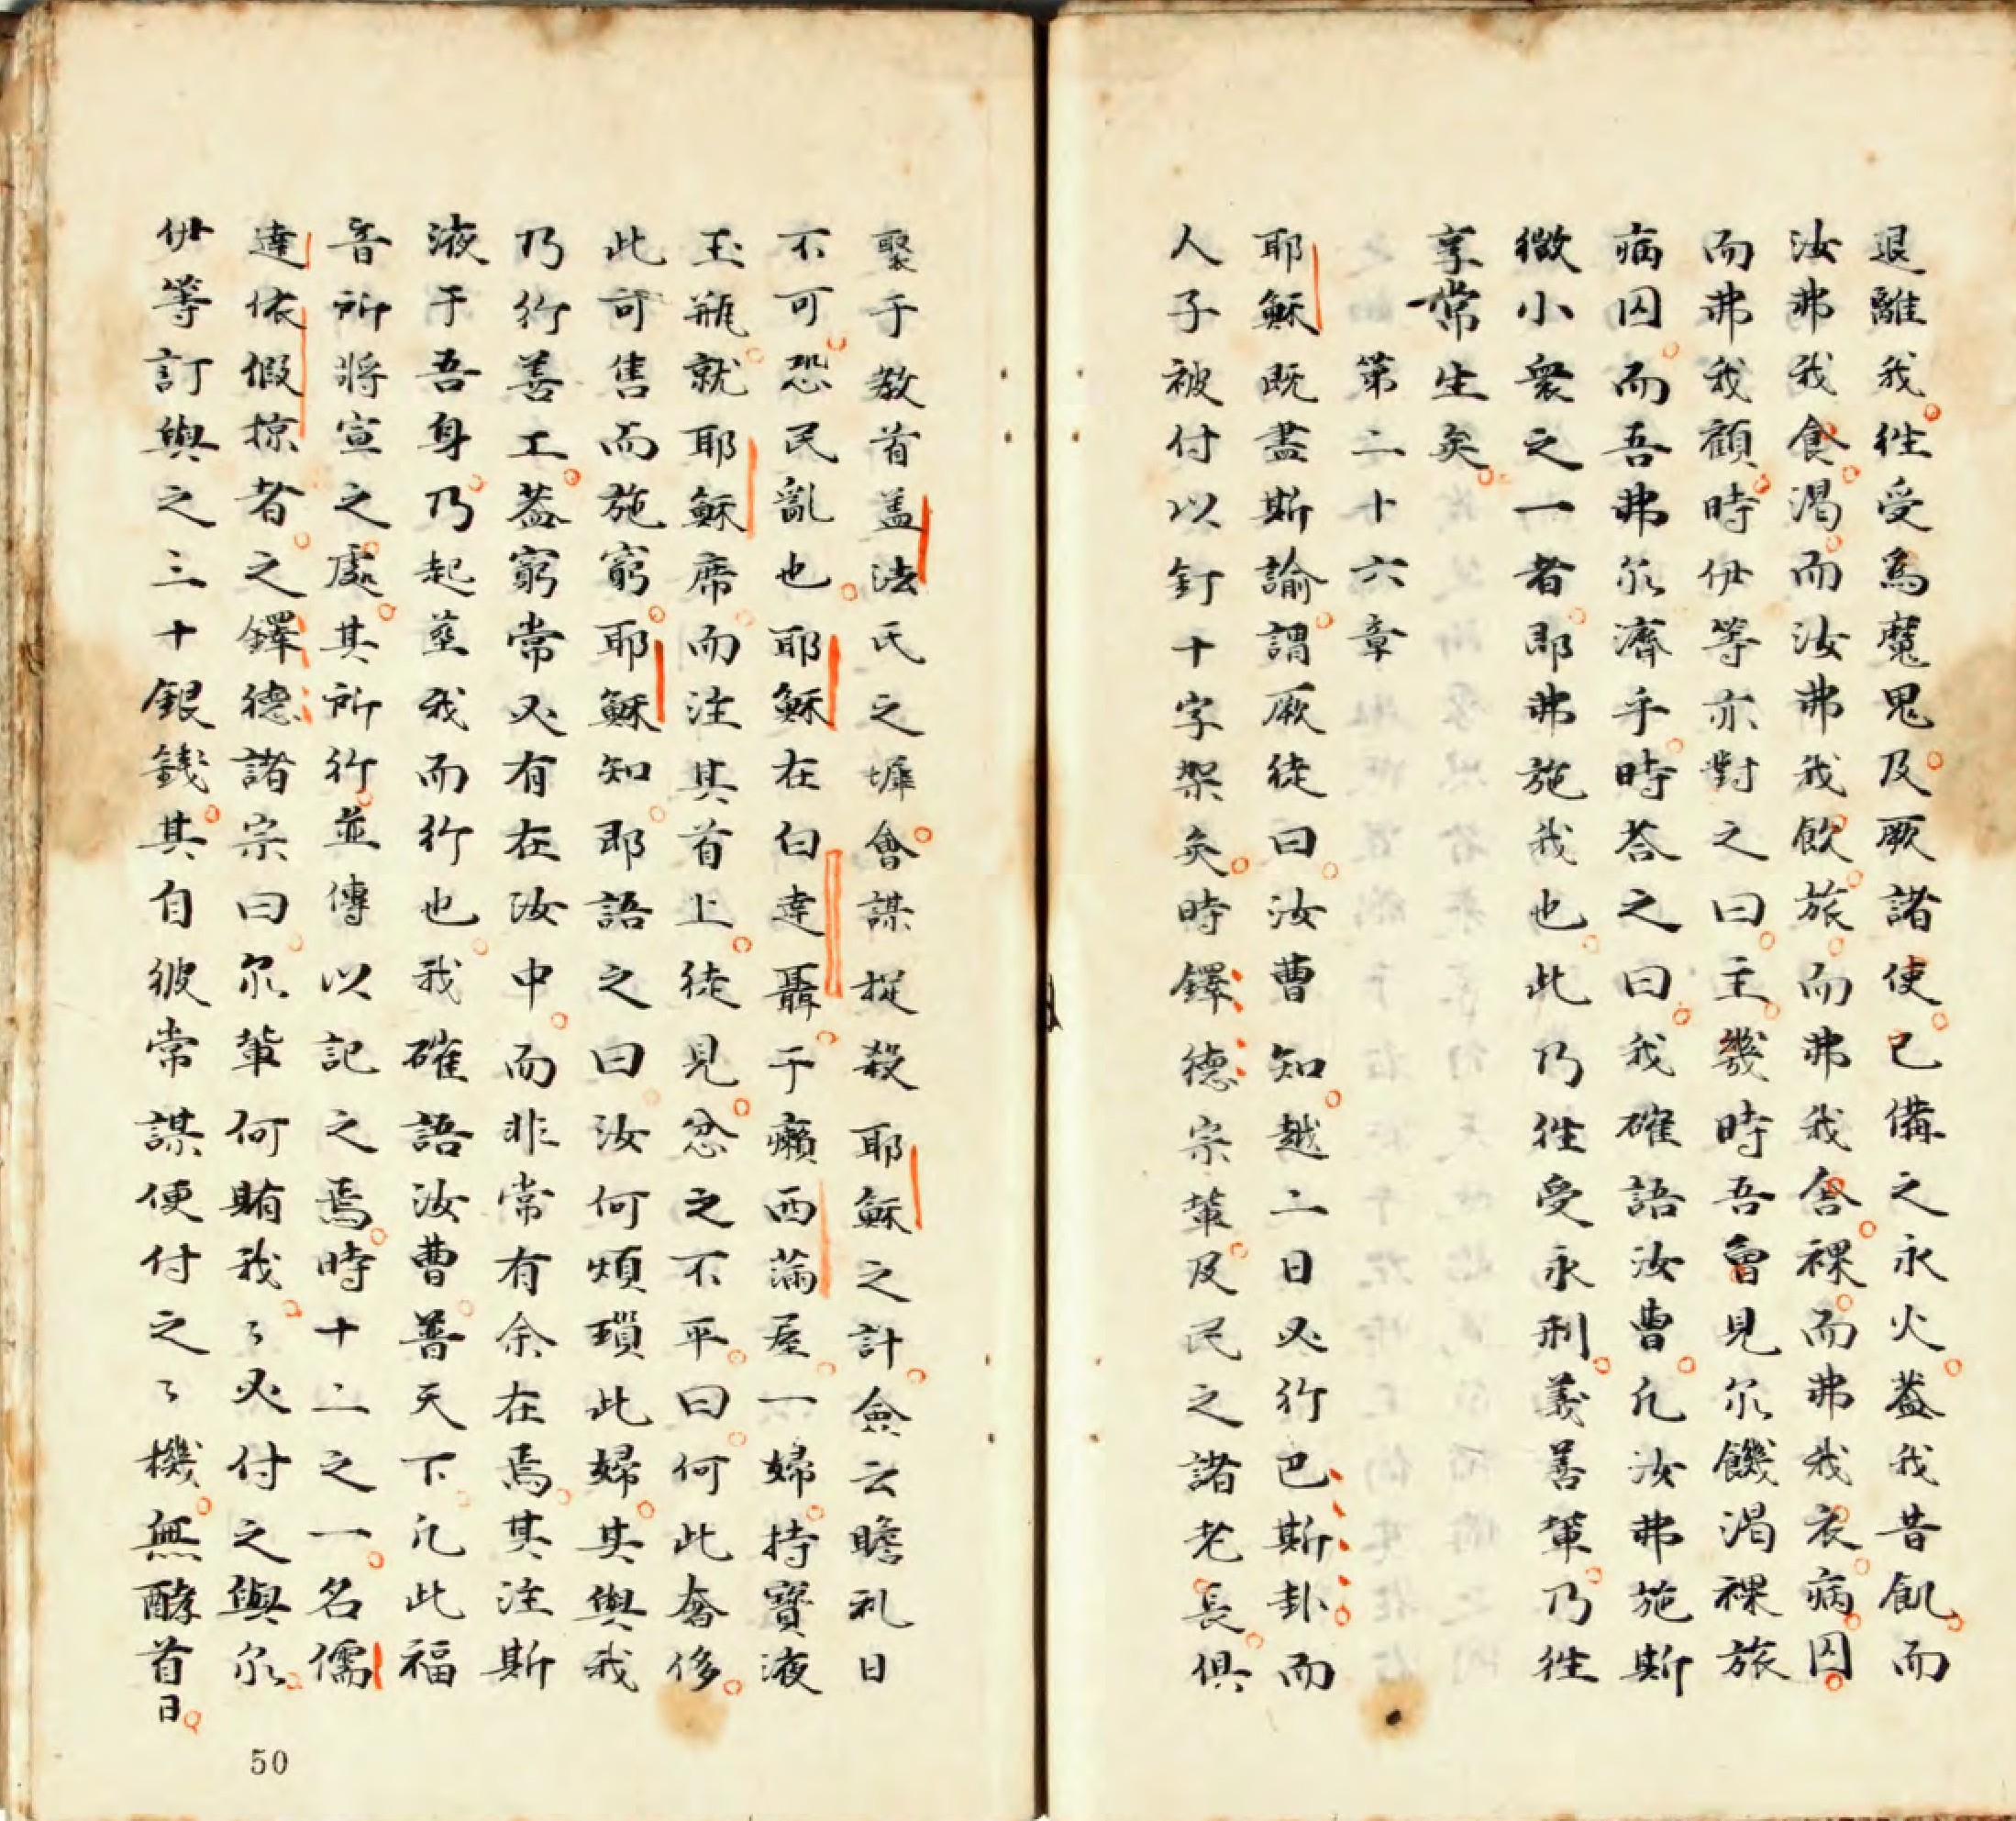 退離我徃受為魔鬼及厥諸使已備之永火蓋我昔飢而
汝弗我食渴而汝弗我飲旅而弗我舍裸而弗我衣病囚
而弗我顧時伊等亦對之曰主幾時吾曾見尔饑渴裸旅
病囚而吾弗尔濟乎時荅之曰我確語汝曹凢汝弗施斯
微小衆之一者即弗施我也此乃徃受永刑義善輩乃徃
享常生矣
第二十六章
耶穌既盡斯諭謂厥徒曰汝曹知越二日必行巴斯卦而
人子被付以釘十字架矣時鐸德宗輩及民之諸老長俱
聚于教首盖法氏之墀會謀捉殺耶穌之計僉云瞻礼日
不可恐民亂也耶穌在伯達聶于癩西滿屋一婦持寶液
玉瓶就耶穌席而注其首上徒見忿之不平曰何此奢侈
此可售而施窮耶穌知即語之曰汝何煩瑣此婦其與我
乃行善工葢窮常必有在汝中而非常有余在焉其注斯
液于吾身乃起塟我而行也我確語汝曹普天下凢此福
音所將宣之處其所行並傳以記之焉時十二之一名儒
達依假掠者之鐸德諸宗曰尔輩何賄我〻必付之與尔
伊等訂與之三十銀錢其自彼常謀便付之〻機無酵首日
50